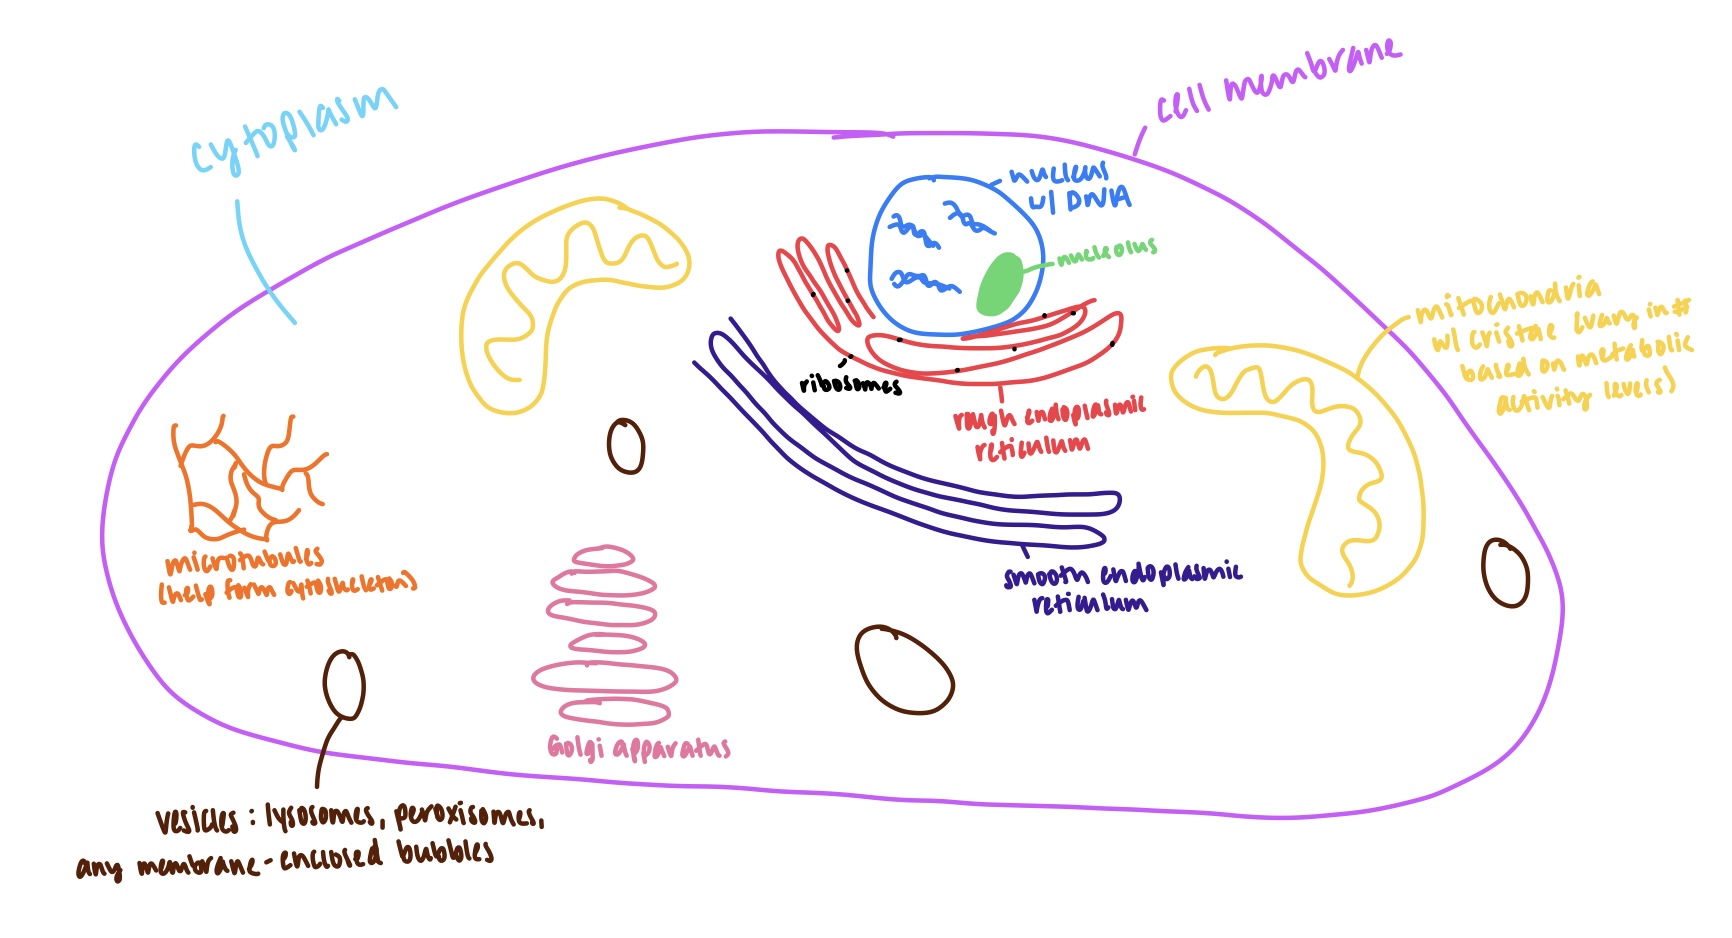 cell membrane
cytoplasm
nucleus
w/ DNA
nucleolus
mitochondria
w/ cristae (vary in #
based on metabolic
activity levels)
ribosomes
rough endoplasmic
reticulum
microtubules
(help form cytoskeleton)
smooth endoplasmic
reticulum
Golgi apparatus
vesicles : lysosomes, peroxisomes,
any membrane-enclosed bubbles